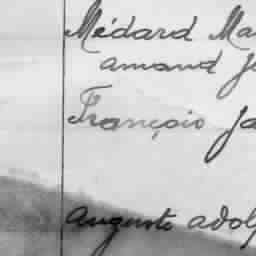 Médard Ma
amand J
François Ja
auguste adolp